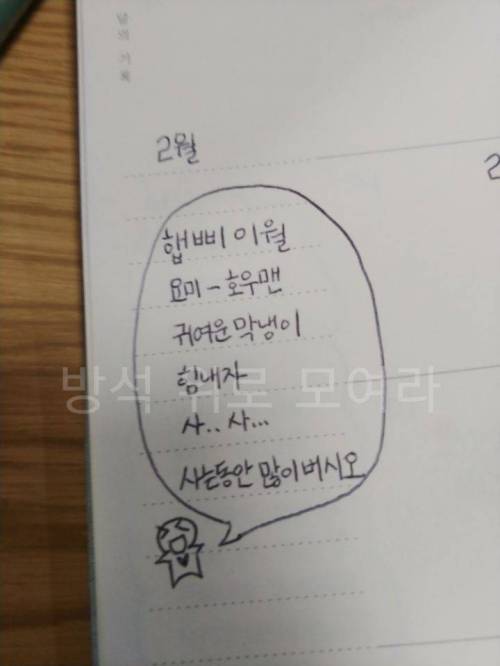 날의 기록
2월
2
햅삐 이월
요미 - 호우맨
귀여운 막냉이
힘내자
방석 위로 모여라
사.. 사...
사는동안 많이 버시오